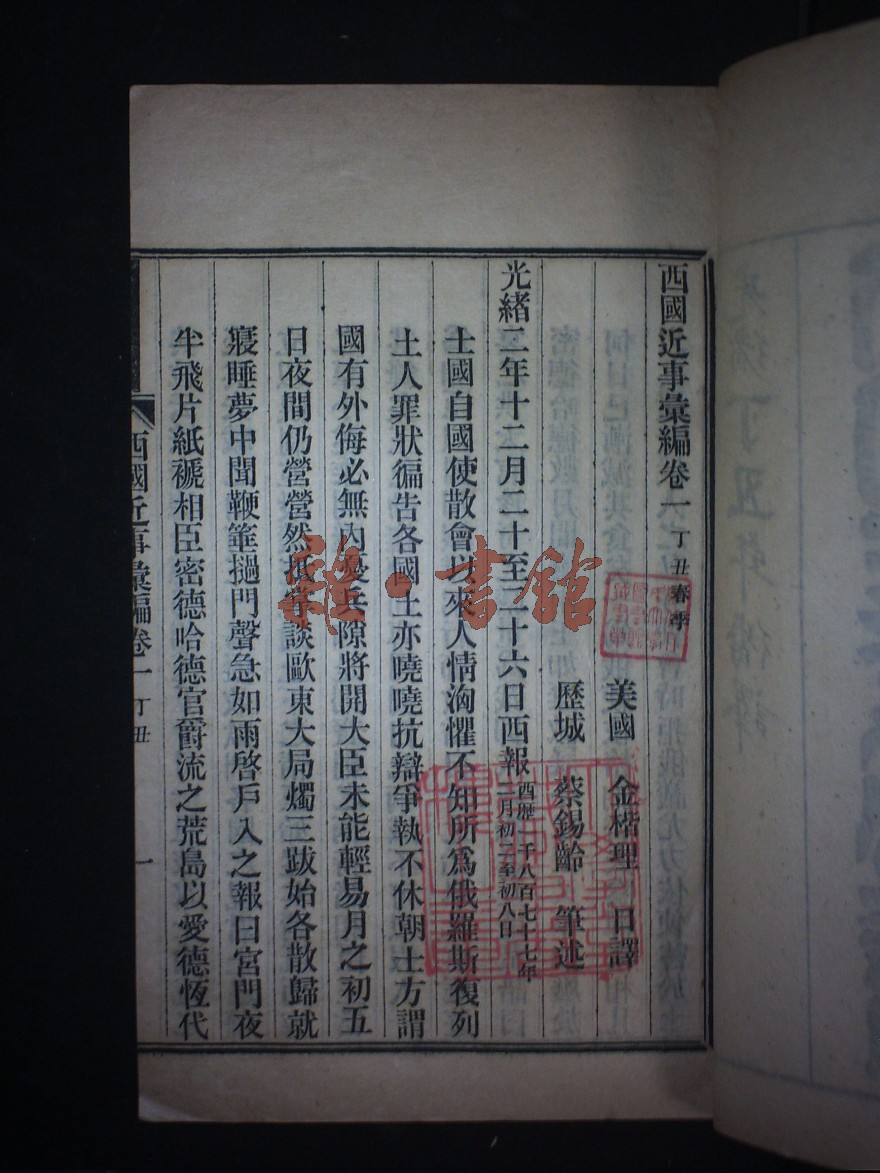 西國近事彙編卷一 丁丑春季
美國 金楷理 口譯
歷城 蔡錫齡 筆述
光緒二年十二月二十至二十六日西報 西歷一千八百七十七年二月初二至初八日
土國自國使散會以來人情洶懼不知所爲俄羅斯復列
土人罪狀徧告各國土亦曉曉抗辯爭執不休朝士方謂
國有外侮必無內憂兵隙將開大臣未能輕易月之初五
日夜間仍營營然抵字談歐東大局燭三跋始各散歸就
寢睡夢中聞鞭箠撾門聲急如雨啓戶入之報曰宮門夜
半飛片紙褫相臣密德哈德官爵流之荒島以愛德恆代
西國近事彙編卷一 丁丑
一
雜·書館